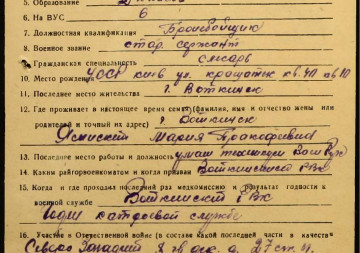 5. Образование
6. На ВУС 6
7. Должностная квалификация Бронебойщик
8. Военное звание стар. сержант
9. Гражданская специальность слесарь
10. Место рождения УССР Киев ул. Крещатик кв. 40
11. Последнее место жительства г. Воткинск
12. Где проживает в настоящее время семья (фамилия, имя и отчество жены или
родителей и точный их адрес) г. Воткинск
Мария Прокофьевна
13. Последнее место работы и должность
14. Каким райгорвоенкоматом и когда призван Воткинский РВК
15. Когда и где проходил последний раз медкомиссию и результат годности к
военной службе Воткинский РВК
годен к строевой службе
16. Участие в Отечественной войне (в составе какой последней части и в качестве
Северо Западный